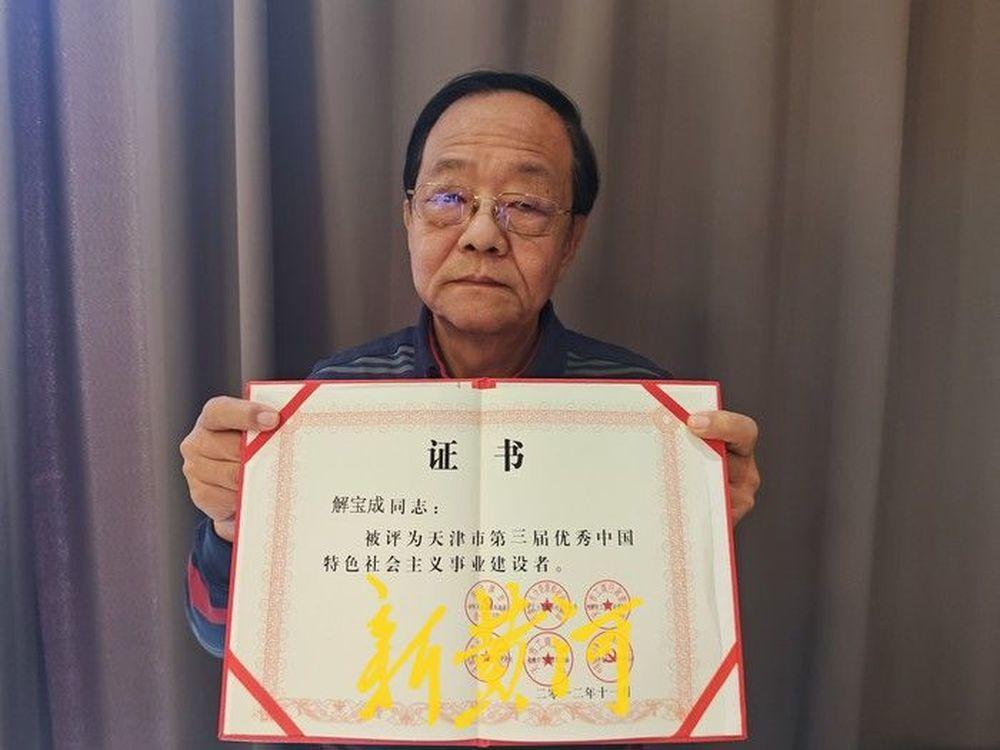 证 书
解宝成同志：
被评为天津市第三届优秀中国
特色社会主义事业建设者。
新黄河
二〇一二年十一月